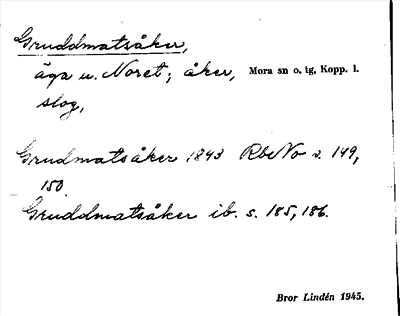 Gruddmatsåker,
äga u. Noret; åker, Mora sn o. tg, Kopp. l.
slog,
Grudmatsåker 1843 RbcNo s. 149,
150.
Gruddmatsåker ib. s. 185, 186.
Bror Lindén 1945.